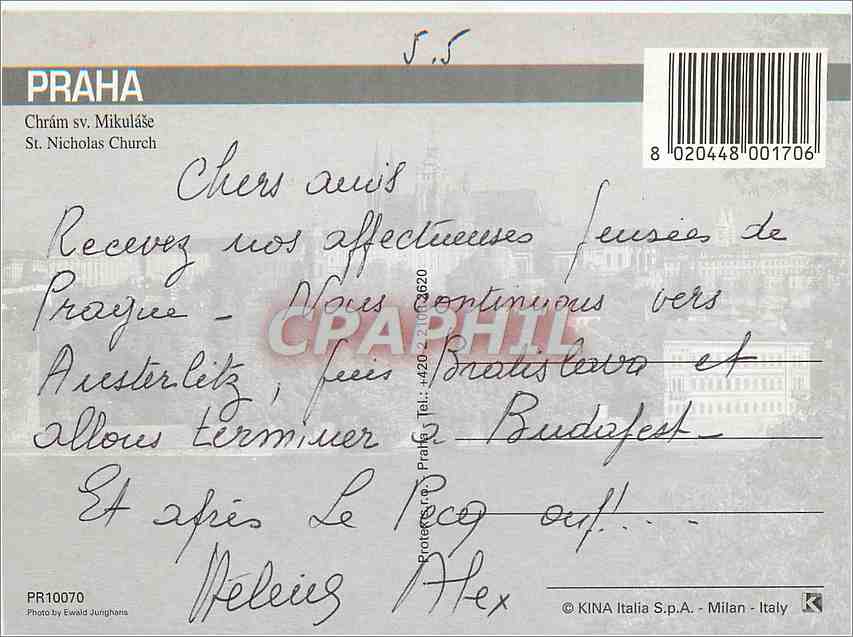 5.5
PRAHA
Chrám sv. Mikuláše
St. Nicholas Church
8 020448 001706
Chers amis
Recevez nos affectueuses pensées de
Prague - Nous continuons vers
Austerlitz, puis Bratislava et
allons terminer à Budapest -
Et après Le Pecq ouf!....
Alex
CPAPHIL
Protext s.r.o. - Praha - Tel.: +420 2 2 2620
PR10070
Photo by Ewald Junghans
© KINA Italia S.p.A. - Milan - Italy
K